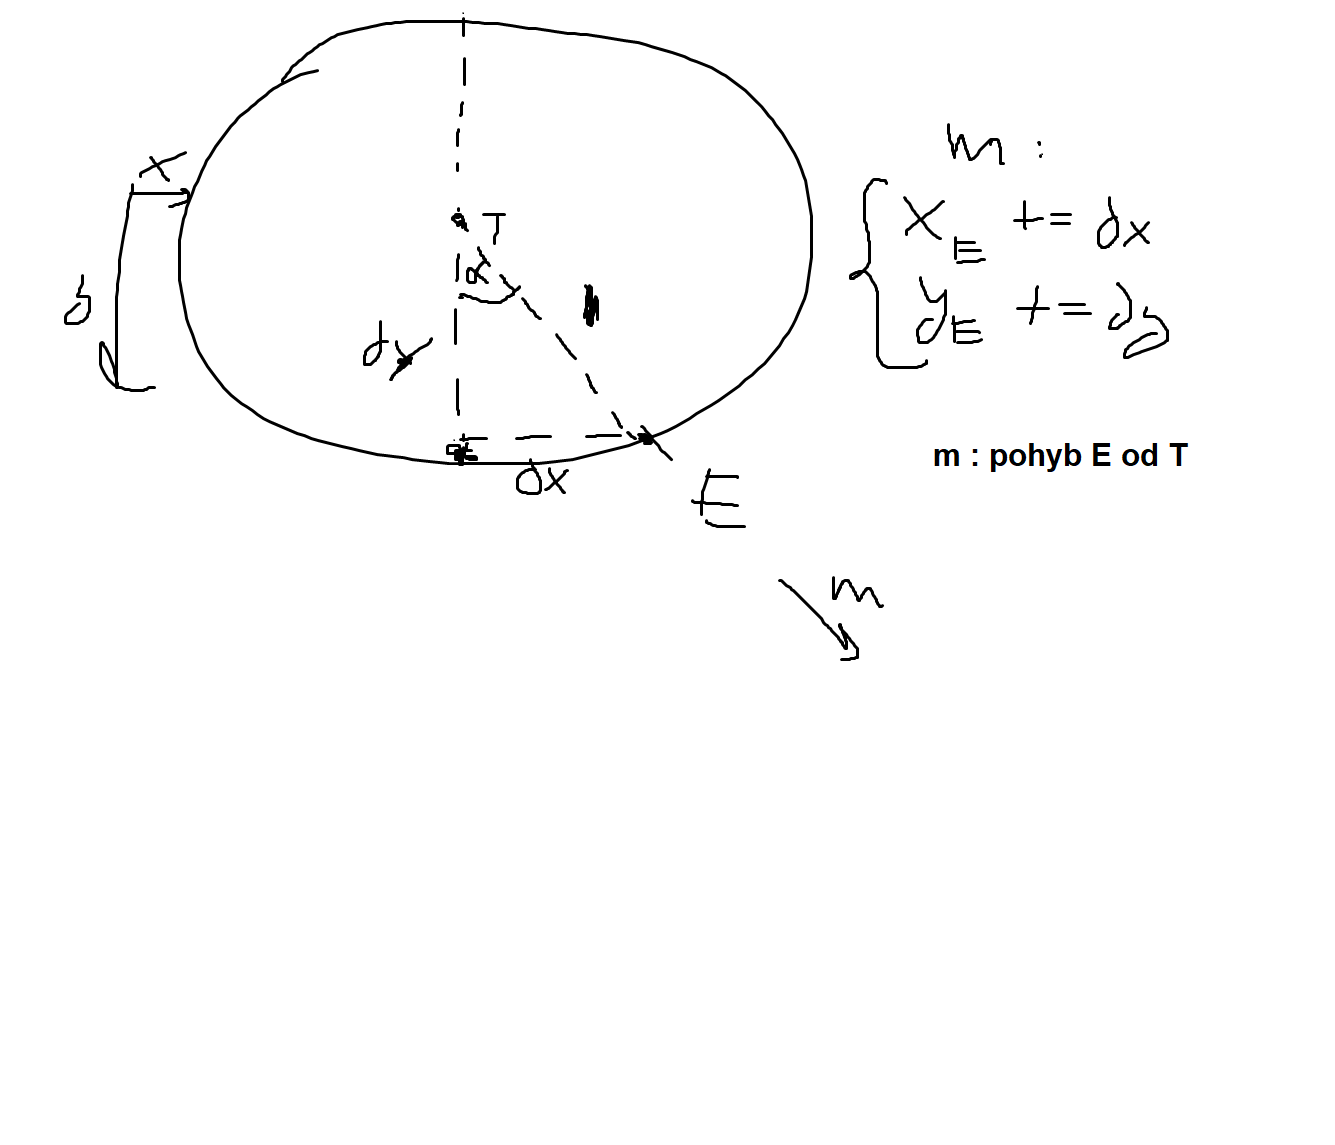 x
y
T
α
dy
dx
E
m
m :
x_E += dx
y_E += dy
m : pohyb E od T